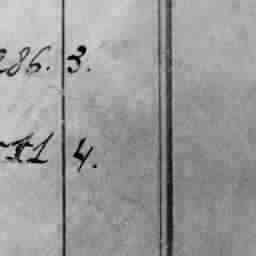 286. 3.
4.